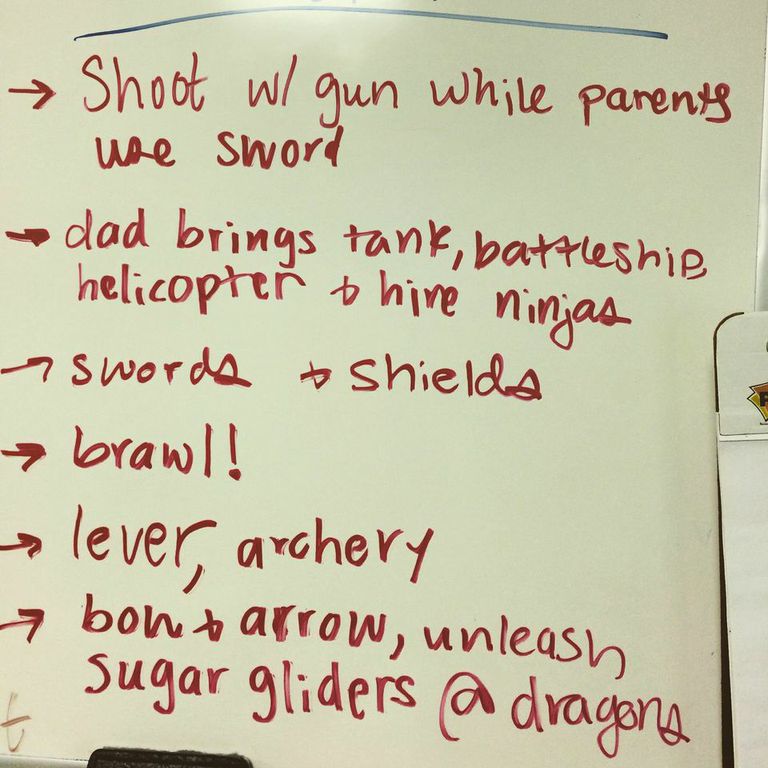 → Shoot w/ gun while parents
use sword
→ dad brings tank, battleship
helicopter + hire ninjas
→ swords + shields
→ brawl!
→ lever, archery
→ bow + arrow, unleash
sugar gliders @ dragons